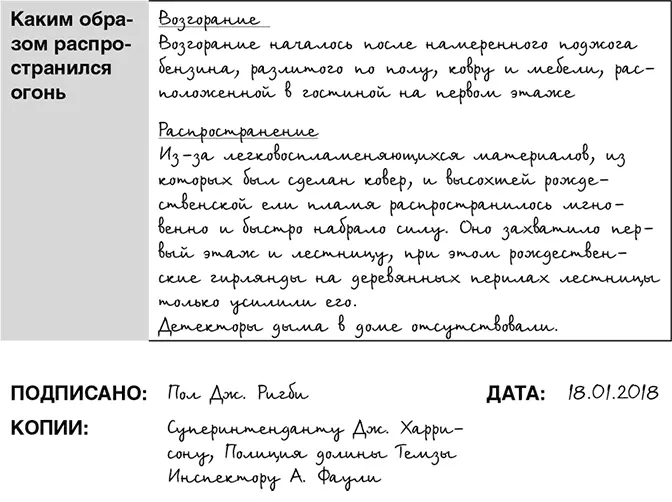 Каким обра-
зом распро-
странился
огонь
Возгорание
Возгорание началось после намеренного поджога
бензина, разлитого по полу, ковру и мебели, рас-
положенной в гостиной на первом этаже
Распространение
Из-за легковоспламеняющихся материалов, из
которых был сделан ковер, и высохшей рожде-
ственской ели пламя распространилось мгно-
венно и быстро набрало силу. Оно захватило пер-
вый этаж и лестницу, при этом рождествен-
ские гирлянды на деревянных перилах лестницы
только усилили его.
Детекторы дыма в доме отсутствовали.
ПОДПИСАНО: Пол Дж. Ригби ДАТА: 18.01.2018
КОПИИ: Суперинтенданту Дж. Харри-
сону, Полиция долины Темзы
Инспектору А. Фаули